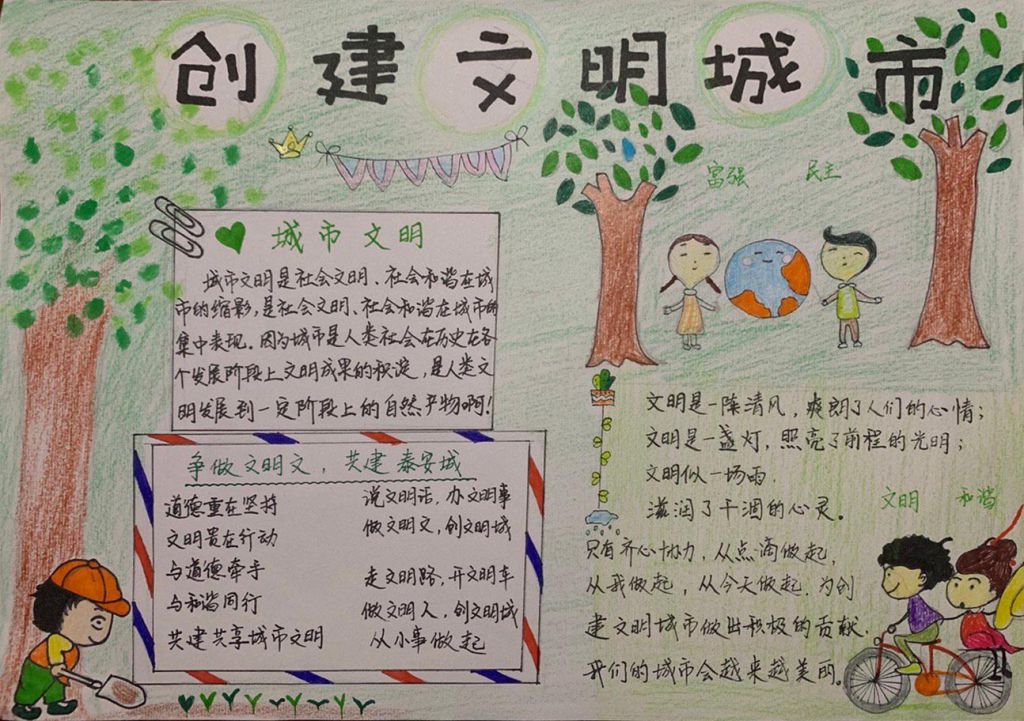 创建文明城市
富强 民主
城市文明
城市文明是社会文明、社会和谐在城
市的缩影,是社会文明、社会和谐在城市的
集中表现。因为城市是人类社会在历史在各
个发展阶段上文明成果的积淀,是人类文
明发展到一定阶段上的自然产物啊!
争做文明文,共建泰安城
道德重在坚持
文明贵在行动
与道德牵手
与和谐同行
共建共享城市文明
说文明话,办文明事
做文明文,创文明城
走文明路,开文明车
做文明人,创文明城
从小事做起
文明是一阵清风,爽朗了人们的心情;
文明是一盏灯,照亮了前程的光明;
文明似一场雨.
滋润了干涸的心灵。
文明 和谐
只有齐心协力,从点滴做起,
从我做起,从今天做起.为创
建文明城市做出积极的贡献.
我们的城市会越来越美丽。